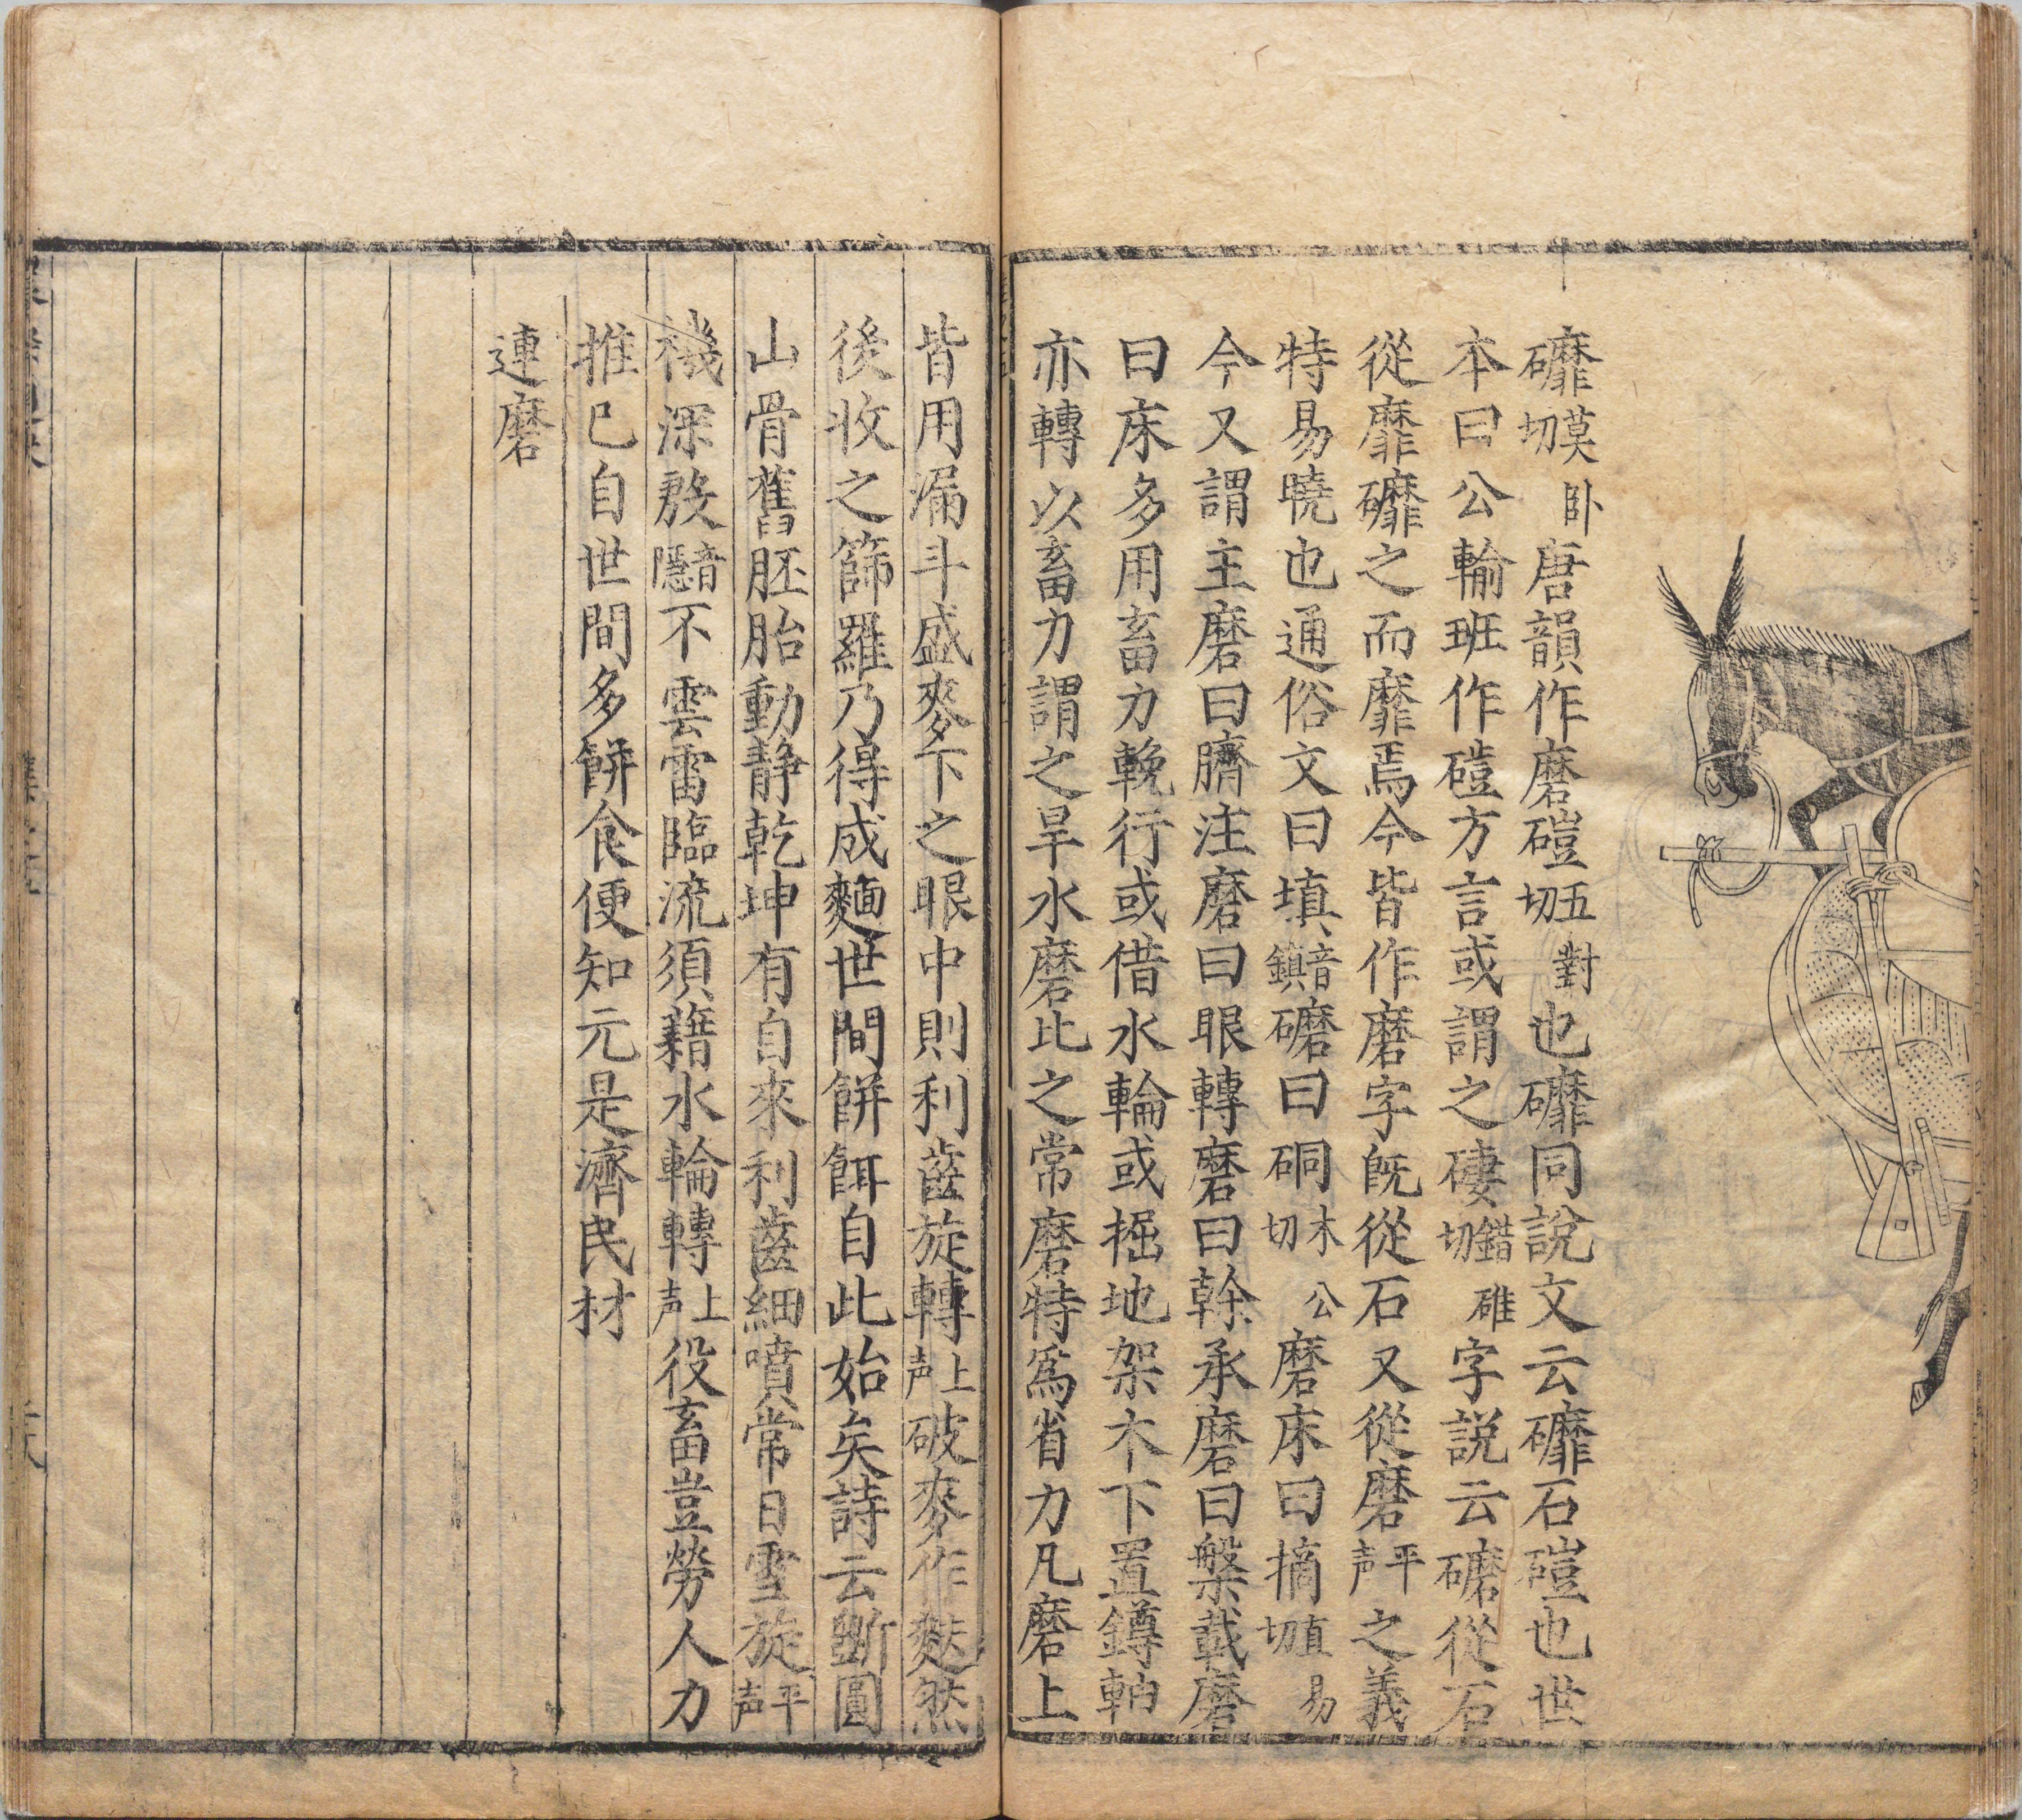 䃺莫卧切唐韻作磨磑五對切也䃺同說文云䃺石磑也世
本曰公輸班作磑方言或謂之磗錯碓切字說云磨從石
從靡䃺之而靡焉今皆作磨字旣從石又從磨平声之義
特易曉也通俗文曰填音鎭磨曰硐木公切磨床曰摘直易切
今又謂主磨曰臍注磨曰眼轉磨曰榦承磨曰槃載磨
曰床多用畜力輓行或借水輪或掘地架木下置鐏軸
亦轉以畜力謂之旱水磨比之常磨特爲省力凡磨上
皆用漏斗盛麥下之眼中則利齒旋轉上声破麥作麩然
後收之篩羅乃得成麵世間餅餌自此始矣詩云斷圓
山骨舊胚胎動静乾坤有自來利齒細噴常日雪旋平声
機深殷音隱不雲雷臨流須藉水輪轉上声役畜豈勞人力
推已自世間多餅食便知元是濟民材
連磨